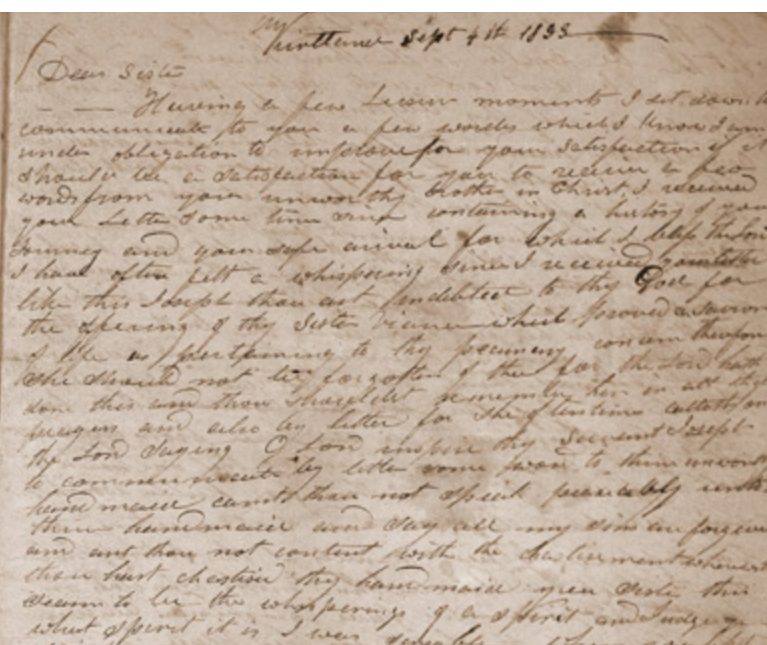 Kirtland Sept 4th 1833
Dear Sister
Having a few Leisure moments I sit down to
communicate to you a few words which I know I am
under obligation to improve for your satisfaction if it
should be a satisfaction for you to receive a few
words from your unworthy brother in Christ. I received
your Letter some time since containing a history of your
Journey and your safe arival for which I bless the Lord
I have often felt a whispering since I received your letter
like this Joseph thou art indebted to thy God for
the offering of thy Sister Vienna which proved a savior
of life as pertaining to thy pecuniary concern therefore
she should not be forgotten of thee for the Lord hath
done this and thou shouldst remember her in all thy
prayers and also by letter for she oftentimes calleth on
the Lord saying O Lord inspire thy Servent Joseph
to communicate by letter some word to thine unworthy
hand maiden canst thou not speak peaceably unto
thine handmaid and say all my sins are forgiven
and art thou not content with the chastisement wherewith
thou hast chastised thy handmaid yea sister this
seams to be the whisperings of a spirit and Judge
what spirit it is I was